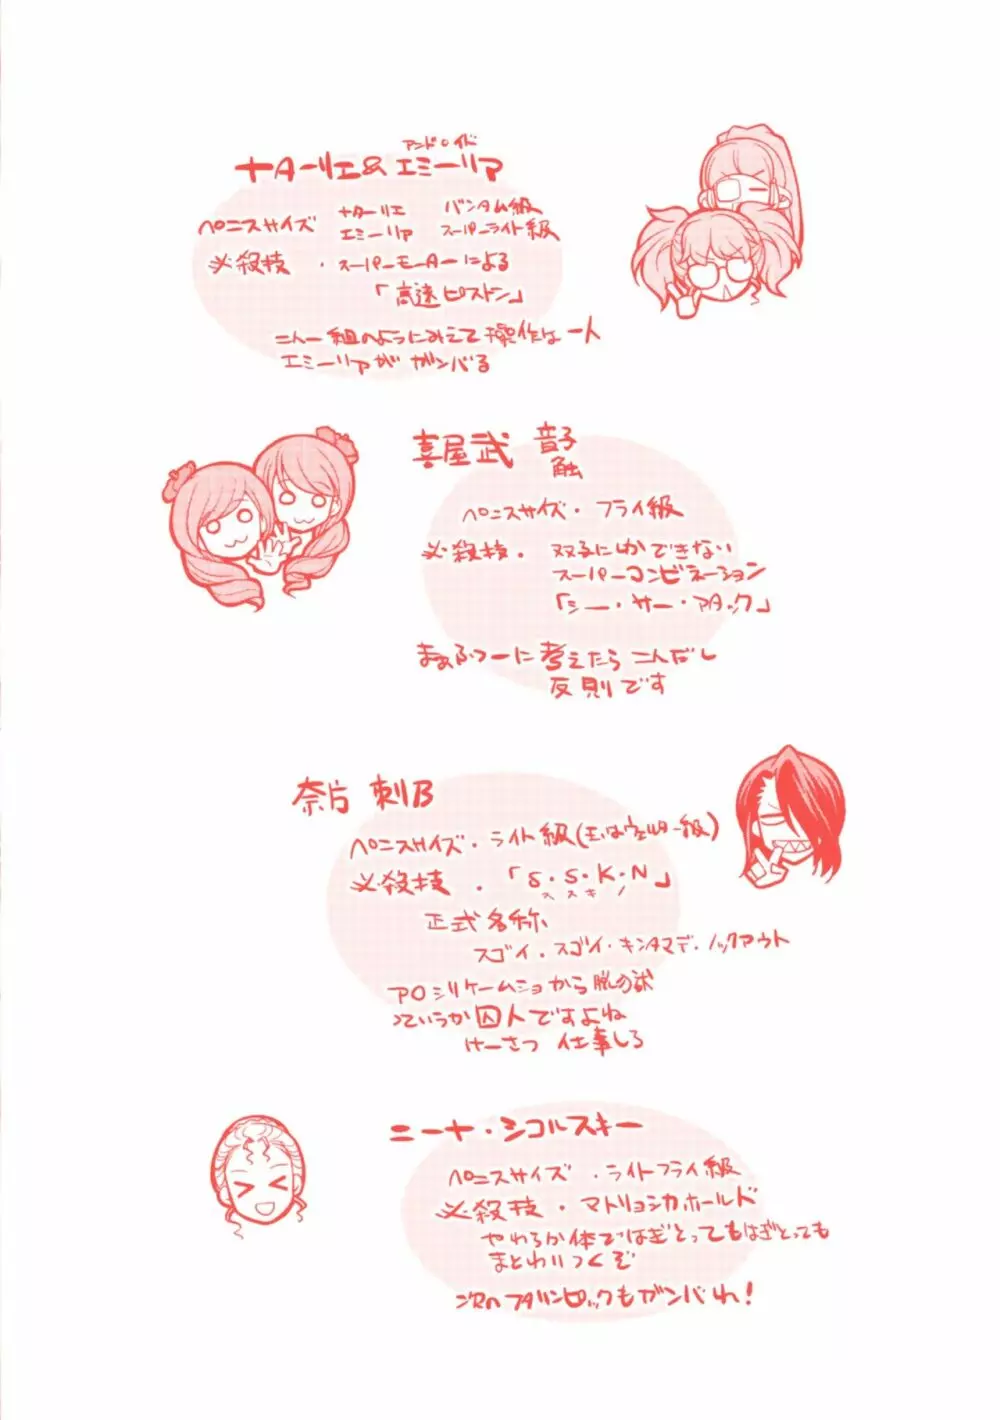 アンドロイド
ナターリエ&エミーリア
ペニスサイズ ナターリエ バンタム級
エミーリア スーパーライト級
必殺技・スーパーモーターによる
「高速ピストン」
二人一組のようにみえて操作は一人
エミーリアがガンバる
喜屋武 音子
触
ペニスサイズ・フライ級
必殺技・双子にしかできない
スーパーコンビネーション
「シー・サー・アタック」
まぁふつーに考えたら二人だし
反則です
奈片 刺B
ペニスサイズ・ライト級(玉はウェルター級)
必殺技・「S・S・K・N」
ス ス キ ノ
正式名称
スゴイ・スゴイ・キンタマデ・ノックアウト
アOシリケームショから脱の獄
っていうか囚人ですよね
けーさつ 仕事しろ
ニーナ・シコルスキー
ペニスサイズ ・ライトフライ級
必殺技・マトリョシカホールド
やわらか体ではぎとってもはぎとっても
まとわりつくぞ
次のフタリンピックもガンバれ!